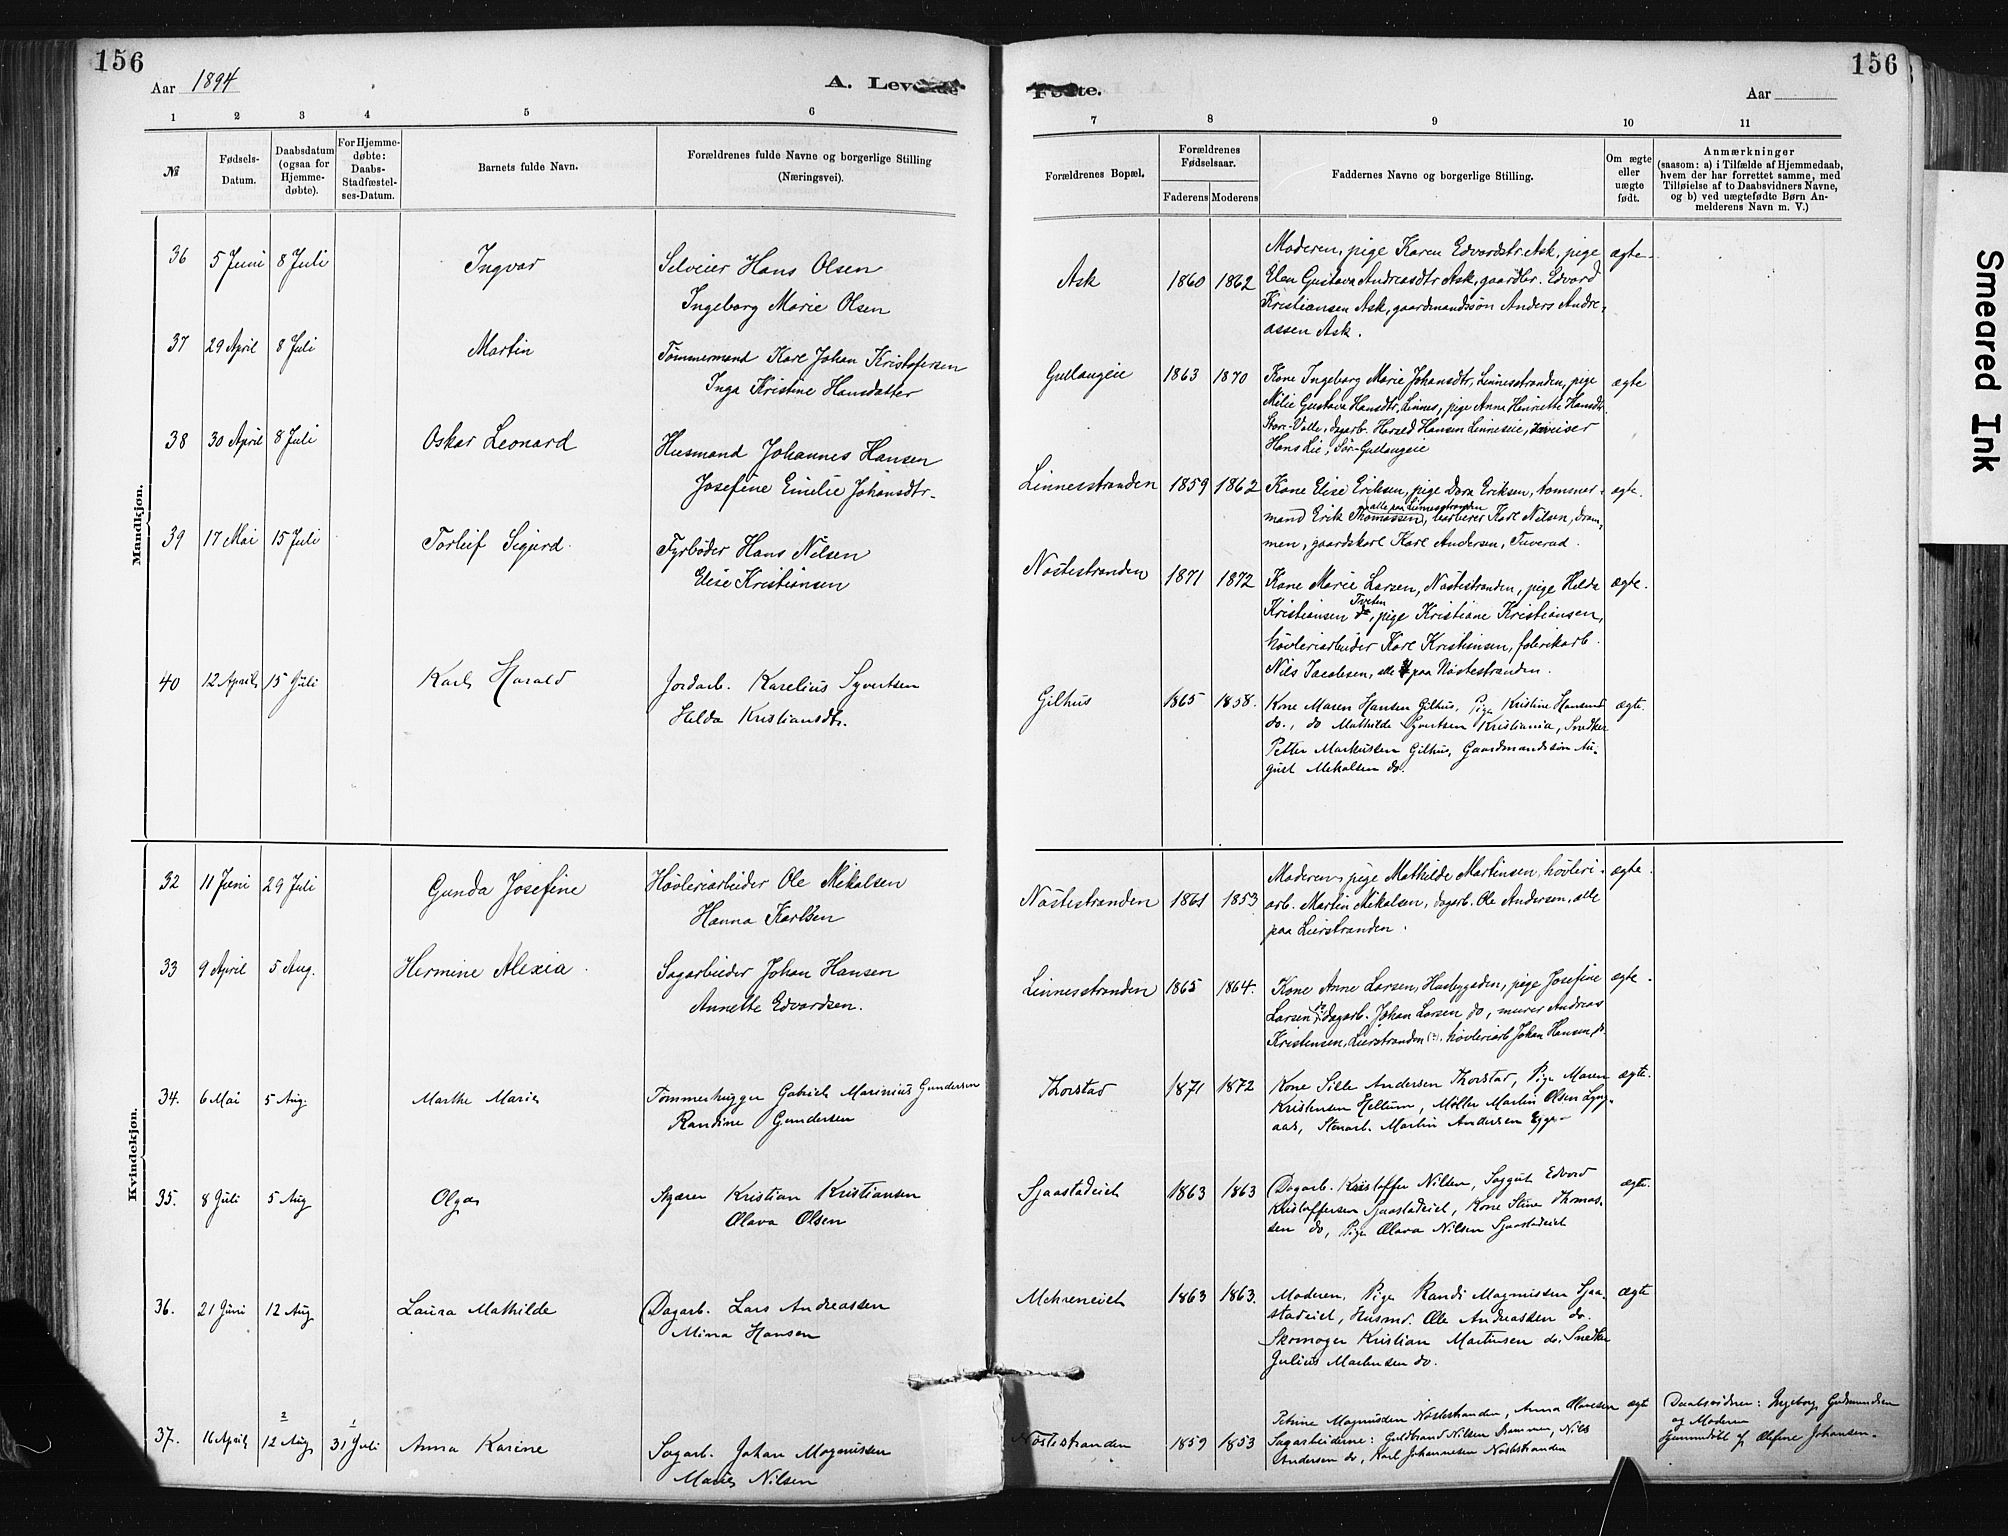 156
Aar 1894
A. Levende
1 2 3 4 5 6
№
Fødsels-
Datum.
Daabsdatum
(ogsaa for
Hjemme-
døbte).
For Hjemme-
døbte:
Daabs-
Stadfæstel-
ses-Datum.
Barnets fulde Navn.
Forældrenes fulde Navne og borgerlige Stilling
(Næringsvei).
Mandkjøn.
36 5 Juni 8 Juli Ingvar Selveier Hans Olsen
Ingeborg Marie Olsen
37 29 April 8 Juli Martin Tømmermand Karl Johan Kristofersen
Inga Kristine Hansdatter
38 30 April 8 Juli Oskar Leonard Husmand Johannes Hansen
Josefine Emilie Johansdtr.
39 17 Mai 15 Juli Torleif Sigurd. Fyrbøder Hans Nilsen
Elise Kristiansen
40 12 April 15 Juli Karl Harald Jordarb. Karelius Syvertsen
Hilda Kristiansdtr.
Kvindekjøn.
32 11 Juni 29 Juli Gunda Josefine Høvleriarbeider Ole Mikalsen
Hanna Karlsen
33 9 April 5 Aug. Hermine Alexia. Sagarbeider Johan Hansen
Annette Edvardsen.
34. 6 Mai 5 Aug. Marthe Marie Tømmerhugger Gabriel Marinius Gundersen
Randine Gundersen
35. 8 Juli 5 Aug Olga Skjærer Kristian Kristiansen
Olava Olsen
36. 21 Juni 12 Aug Laura Mathilde Dagarb. Lars Andreassen
Mina Hansen
2 1
37. 16 April 12 Aug 31 Juli Anna Karine Sagarb. Johan Magnussen
Marie Nilsen
156
Fødte.
Aar
7 8 9 10 11
Forældrenes Bopæl.
Forældrenes
Fødselsaar.
Faderens Moderens
Faddernes Navne og borgerlige Stilling.
Om ægte
eller
uægte
født.
Anmærkninger
(saasom: a) i Tilfælde af Hjemmedaab,
hvem der har forrettet samme, med
Tilføielse af to Daabsvidners Navne,
og b) ved uægtefødte Børn An-
melderens Navn m. V.)
Moderen, pige Karen Edvardstr. Ask, pige ægte
Ask 1860 1862 Elen Gustava Andreasdtr Ask, gaardbr. Edvard
Kristiansen Ask, gaardmandssøn Anders Andre-
assen Ask.
Gullaugeie 1863 1870 Kone Ingeborg Marie Johansdtr, Linnesstranden, pige ægte
Milie Gustava Hansdtr, Linnes, pige Anna Henriette Hansdtr
Stor-Valle, dagarb. Harald Hansen Linneseie,
Hans Lie, Sør-Gullaugeie
Linnesstranden 1859 1862 Kone Elise Eriksen, pige Dora Eriksen, tømmer- ægte.
alle paa Linnesstranden
mand Erik Thomassen, barberer Karl Nilsen, Dram-
men, gaardskarl Karl Andersen, Tuverud.
Nøstestranden 1871 1872 Kone Marie Larsen, Nøstestranden, pige Hilda ægte.
Tveten
Kristiansen do, pige Kristiane Kristiansen,
høvleriarbeider Karl Kristiansen, fabrikarb.
Nils Jacobsen, alle paa Nøstestranden.
Gilhus 1865 1858. Kone Maren Hansen Gilhus, Pige Kristine Hansen ægte.
do., do Mathilde Syvertsen Kristiania, Snedker
Petter Markussen Gilhus, Gaardmandssøn Au-
gust Mikalsen do.
Moderen, pige Mathilde Martinsen, høvleri- ægte.
Nøstestranden 1861 1853 arb. Martin Mikalsen, dagarb. Ole Andersen, alle
paa Lierstranden.
Linnesstranden 1865 1864. Kone Anne Larsen, Husbygaden, pige Josefine ægte.
Larsen do, dagarb. Johan Larsen do, murer Andreas
Kristensen, Lierstranden, høvleriarb Johan Hansen, do.
Thorstad 1871 1872 Kone Sille Andersen Thorstad, Pige Maren ægte.
Kristensen Heltum, Møller Martin Olsen Lyng-
aas, Stenarb. Martin Andersen Egge
Sjaastadeiet 1863 1863 Dagarb. Kristoffer Nilsen, Saggut Edvard ægte.
Kristoffersen Sjaastadeiet, Kone Stine Thomas-
sen do, Pige Olava Nilsen Sjaastadeiet
Mehreneiet 1863 1863. Moderen, Pige Randi Magnussen Sjaa- ægte
stadeiet, Husmd. Ole Andreassen do.
Skomager Kristian Martinsen do. Snedker
Julius Martinsen do.
Petrine Magnussen Nøstestranden, Anna Olavesen ægte
Nøstestranden 1859 1853 Sagarbeiderne: Guldbrand Nilsen Drammen, Nils
Andersen do, Karl Johannesen Nøstestranden
Daabsvidner: Ingeborg Gudmundsen
og Moderen
Hjemmedøbt af Olefine Johansen.
Smeared Ink